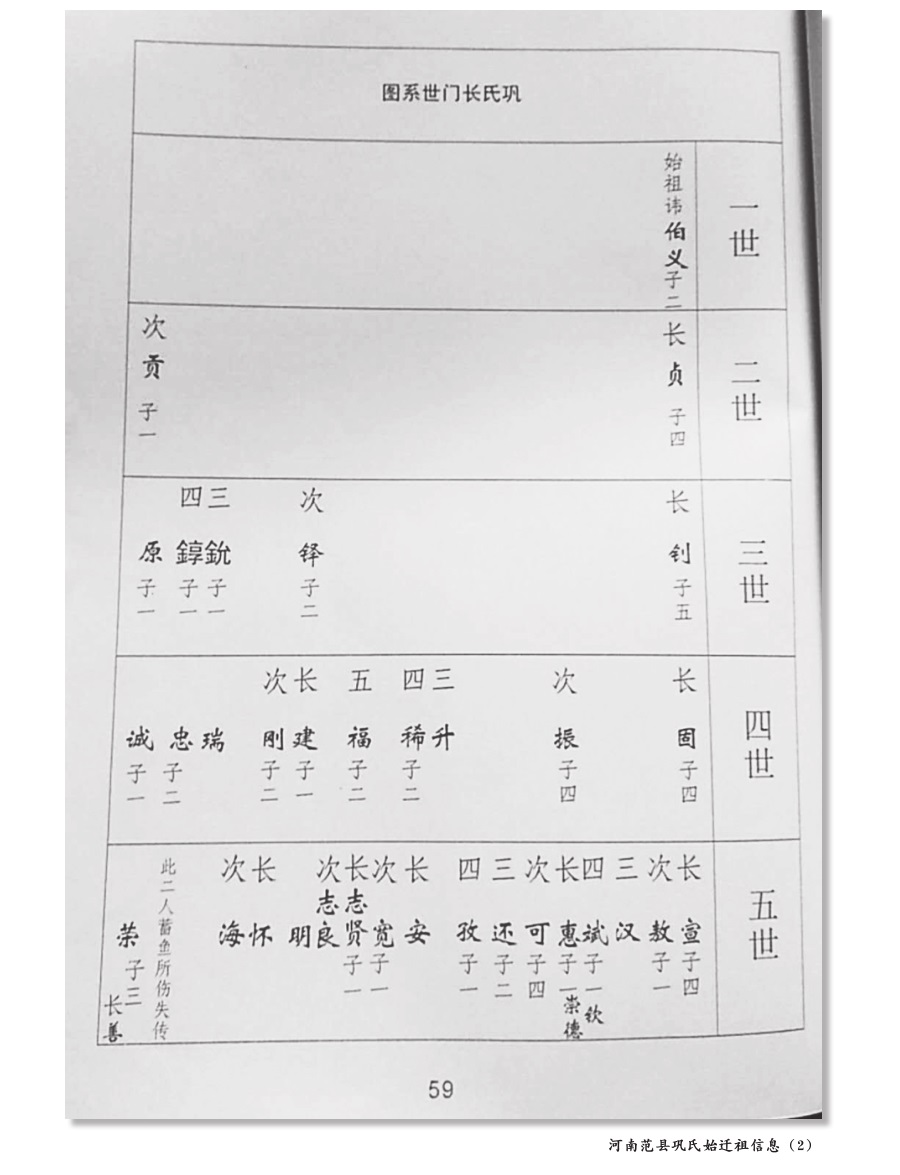 图系世门长氏巩
一世
始祖讳伯义子二
二世
长贞子四
次贡子一
三世
长钊子五
次铎子二
三鈗子一
四錞子一
原子一
四世
长固子四
次振子四
三升
四稀子二
五福子二
长建子一
次刚子二
瑞
忠子二
诚子一
五世
长宣子四
次敖子一
三汉
四斌子一钦
长惠子一崇德
次可子四
三还子二
四孜子一
长安
次宽子一
长志贤子一
次志良
明
长怀
次海
此二人蓄鱼所伤失传
荣子三
长善
59
河南范县巩氏始迁祖信息（2）